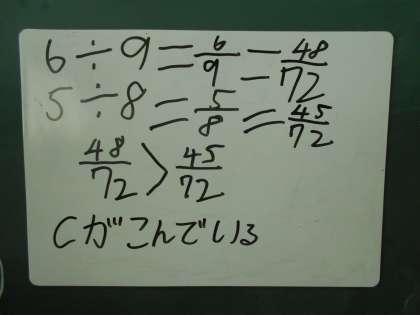 6÷9=6/9=48/72
5÷8=5/8=45/72
48/72>45/72
Cがこんでいる